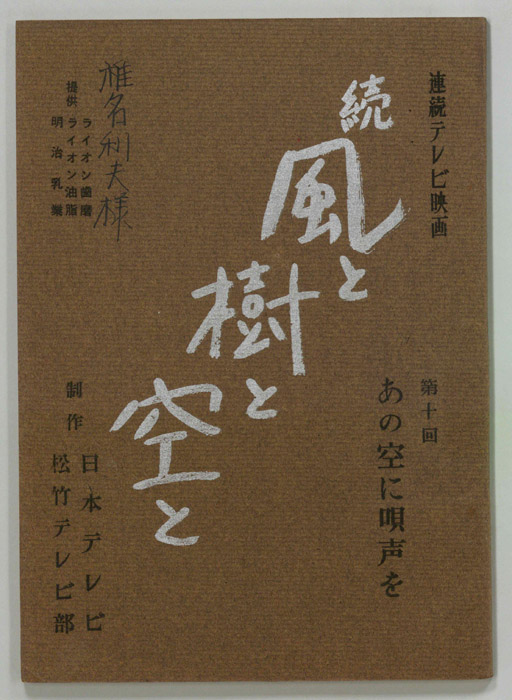 連続テレビ映画
続
風と
樹と
空と
第十回
あの空に唄声を
椎名利夫様
提供
ライオン歯磨
ライオン油脂
明治乳業
制作
日本テレビ
松竹テレビ部